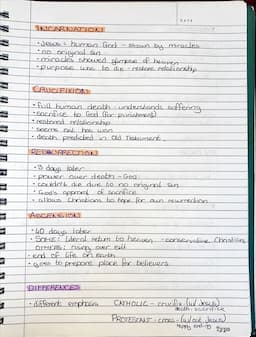 DATE
INCARNATION
• Jesus = human God - shown by miracles
• no original sin
• miracles showed glimpse of heaven
• purpose was to die - restore relationship
CRUCIFIXION
• full human death - understands suffering
• sacrifice to God (for punishment)
• restored relationship
• seems evil has won
• death predicted in Old Testament
RESURRECTION
• 3 days later
• power over death - God
• couldn't die due to no original sin
• God's approval of sacrifice
• allows Christians to hope for own resurrection
ASCENSION
• 40 days later
• SOME: literal return to heaven - conservative Christians
OTHERS: rising over evil
• end of life on earth
• goes to prepare place for believers
DIFFERENCES
• different emphasis CATHOLIC - crucifix (w/ Jesus)
death: sacrifice
PROTESTANT - cross (w/out Jesus)